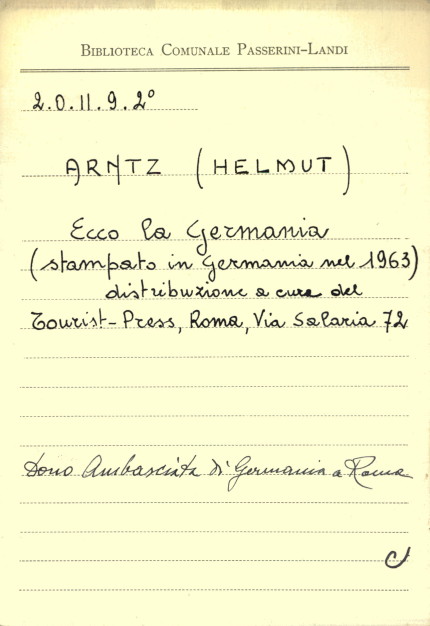 BIBLIOTECA COMUNALE PASSERINI-LANDI
2.O.II.9.2°
ARNTZ (HELMUT)
Ecco la Germania
(stampato in Germania nel 1963)
distribuzione a cura del
Tourist-Press, Roma, Via Salaria 72
Dono Ambasciata di Germania a Roma
C